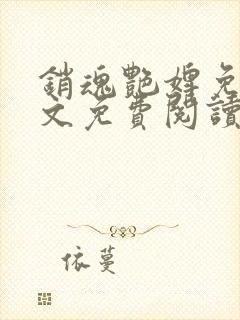 銷魂艷婢免
文免費閱讀
依蔓